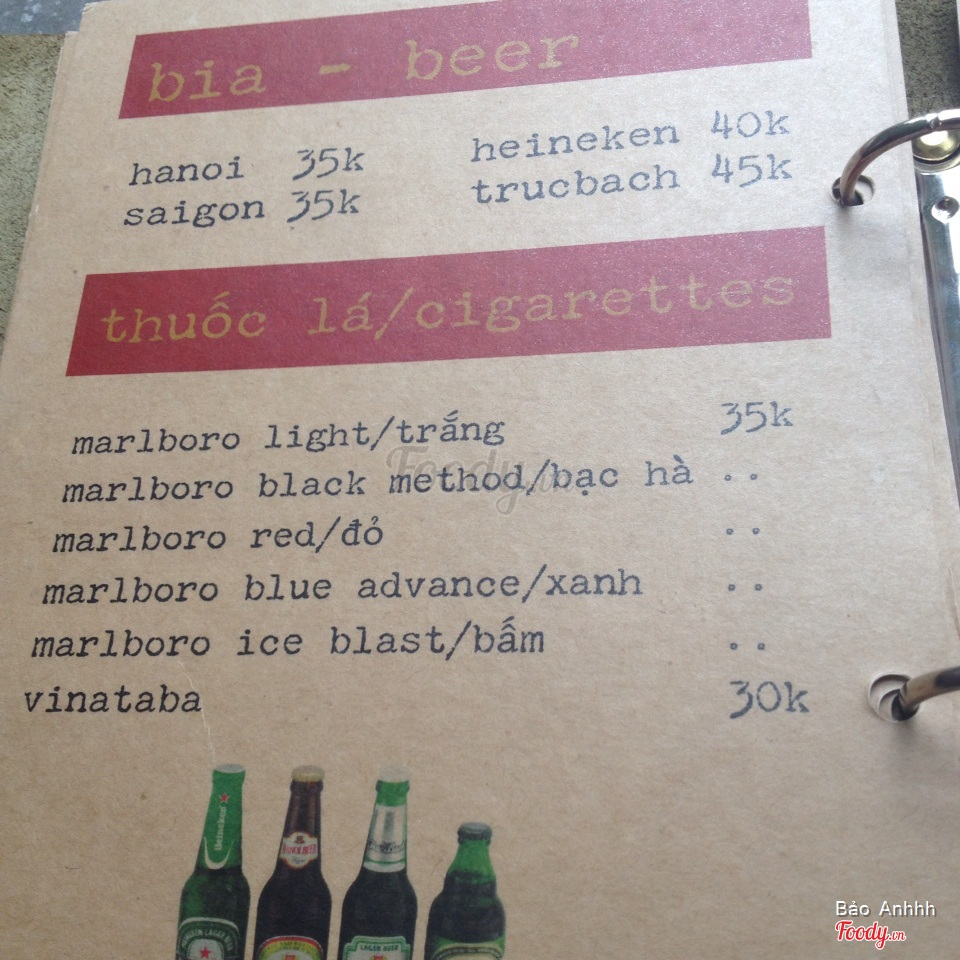 bia - beer
hanoi 35k
saigon 35k
heineken 40k
trucbach 45k
thuốc lá/cigarettes
marlboro light/trắng 35k
marlboro black method/bạc hà ..
marlboro red/đỏ ..
marlboro blue advance/xanh ..
marlboro ice blast/bấm ..
vinataba 30k
Foody.vn
Heineken
HANOI BEER
LAGER BEER
Bảo Anhhh
Foody.vn